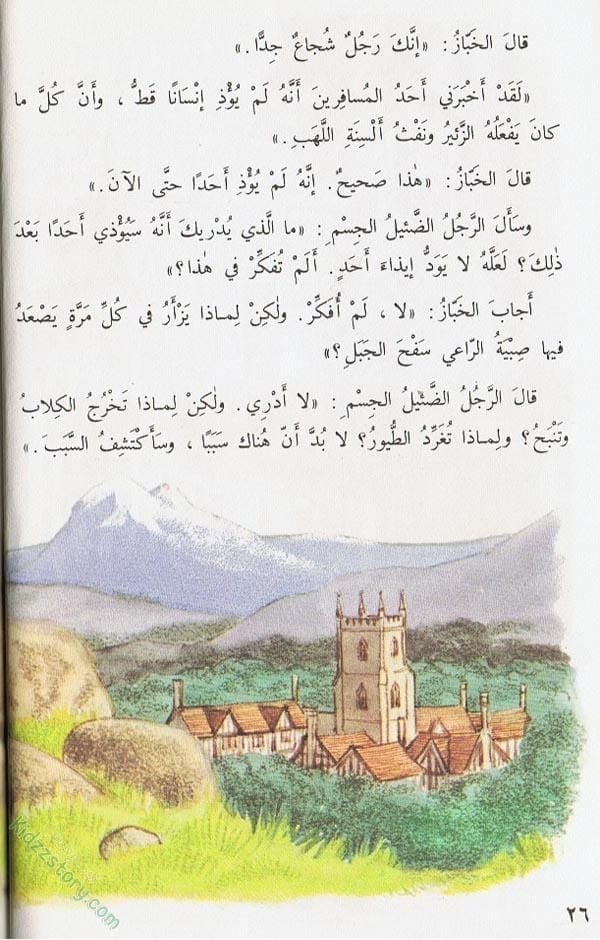 قالَ الخَبّازُ : «إنَّكَ رَجُلٌ شُجاعٌ جِدًّا .»
«لَقَدْ أَخْبَرَني أَحَدُ المُسافِرينَ أَنَّهُ لَمْ يُؤْذِ إنْسانًا قَطُّ ، وأَنَّ كُلَّ ما
كانَ يَفْعَلُهُ الزَّئيرُ ونَفْثُ أَلْسِنَةِ اللَّهَبِ .»
قالَ الخَبّازُ : «هٰذا صَحيحٌ . إنَّهُ لَمْ يُؤْذِ أَحَدًا حتَّى الآنَ .»
وسَأَلَ الرَّجُلُ الضَّئيلُ الجِسْمِ : «ما الَّذي يُدْريكَ أَنَّهُ سَيُؤْذي أَحَدًا بَعْدَ
ذٰلِكَ؟ لَعَلَّهُ لا يَوَدُّ إيذاءَ أَحَدٍ . أَلَمْ تُفَكِّرْ في هٰذا؟»
أَجابَ الخَبّازُ : «لا ، لَمْ أُفَكِّرْ . ولٰكِنْ لِماذا يَزْأَرُ في كُلِّ مَرَّةٍ يَصْعَدُ
فيها صِبْيَةُ الرّاعي سَفْحَ الجَبَلِ؟»
قالَ الرَّجُلُ الضَّئيلُ الجِسْمِ : «لا أَدْري . ولٰكِنْ لِماذا تَخْرُجُ الكِلابُ
وتَنْبَحُ؟ ولِماذا تُغَرِّدُ الطُّيورُ؟ لا بُدَّ أَنّ هُناكَ سَبَبًا ، وسَأَكْتَشِفُ السَّبَبَ .»
Kidzzstory.com
٢٦